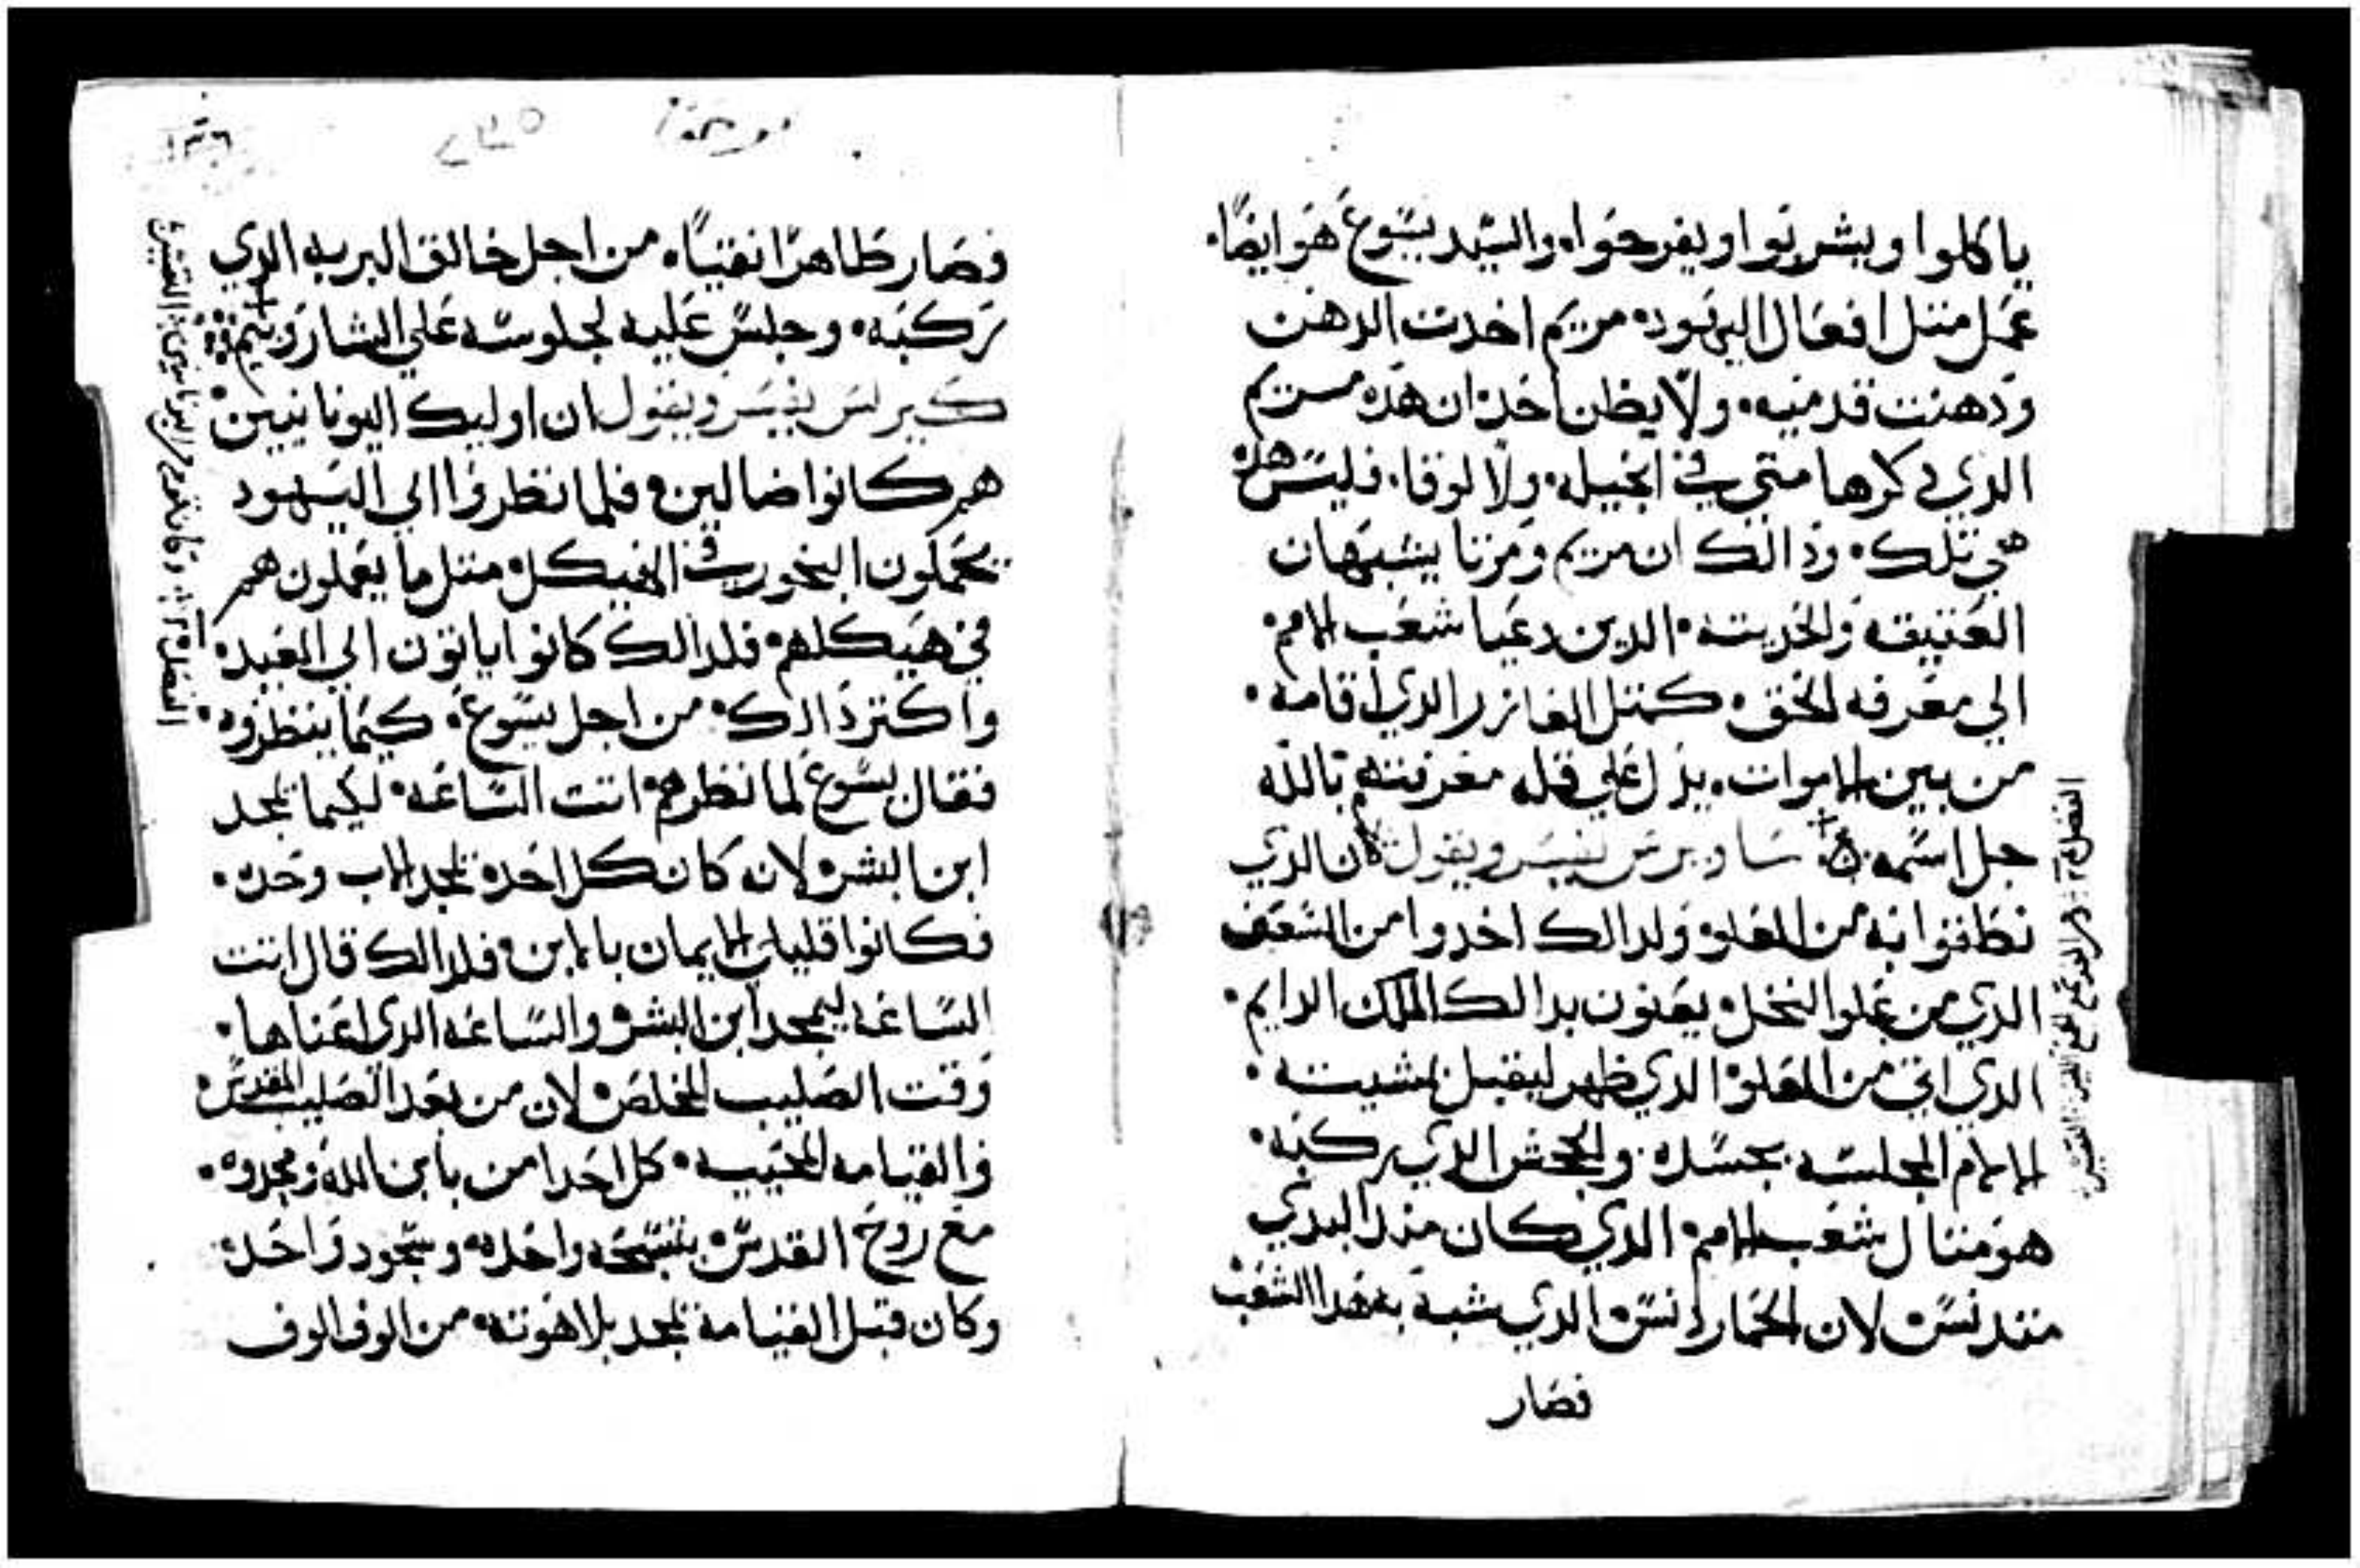 ياكلوا ويشربوا ويفرحوا والسيد يسوع هو ايضا
عمل متل افعال اليهود مريم اخدت الدهن
ودهنت قدميه ولا يظن احد ان هده مريم
الدي دكرها متي في انجيله ولا لوقا فليس هده
هي تلك ودالك ان مريم ومرتا يشبهان
العتيقه والحديته الدين دعيا شعب الامم
الي معرفه الحق كمتل العازر الدي اقامه
من بين الاموات يدل علي قله معرفتهم بالله
جل اسمه ساويرس يفسر ويقول كان الدي
نطقوا به من العلو ولدالك اخدوا من السعف
الدي من علو النخل يعنون بدالك الملك الدايم
الدي اتي من العلو الدي ظهر ليقبل بمشيته
الالام المجلسه بجسده والجحش الدي ركبه
هو متال شعب الامم الدي كان مند البدي
متدنس لان الحمار دنس الدي شبه به هدا الشعب
فصار
فصار طاهرا نقيا من اجل خالق البريه الدي
ركبه وجلس عليه لجلوسه علي الشاروبيم
كيرلس يفسر ويقول ان اوليك اليونانيين
هم كانوا ضالين فلما نظروا الي اليهود
يحملون البخور في الهيكل متل ما يعملون هم
في هيكلهم فلدالك كانوا ياتون الي العيد
واكتر دالك من اجل يسوع كيما ينظروه
فقال يسوع لما نظرهم اتت الساعه لكيما يمجد
ابن البشر لانه كان كل احد يمجد الاب وحده
فكانوا قليلي الايمان بالابن فلدالك قال اتت
الساعه ليمجد ابن البشر والساعه الدي اعناها
وقت الصليب المخلص لان من بعد الصليب المقدس
والقيامه المحييه كل احد امن بابن الله ومجدوه
مع روح القدس بتسبحه واحده وسجود واحد
وكان قبل القيامة يمجد بلاهوته من الوف الوف